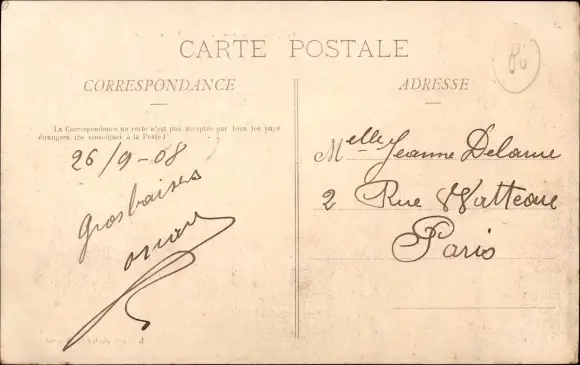 CARTE POSTALE
CORRESPONDANCE
ADRESSE
La Correspondance au recto n'est pas acceptée par tous les pays
étrangers. (Se renseigner à la Poste.)
26/9-08
Gros baisers
Melle Jeanne Delarue
2 Rue Watteau
Paris